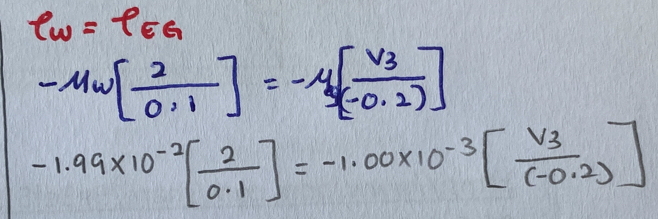 τw = τEG
-μw[2/0.1] = -μg[V3/(-0.2)]
-1.99×10^-2[2/0.1] = -1.00×10^-3[V3/(-0.2)]